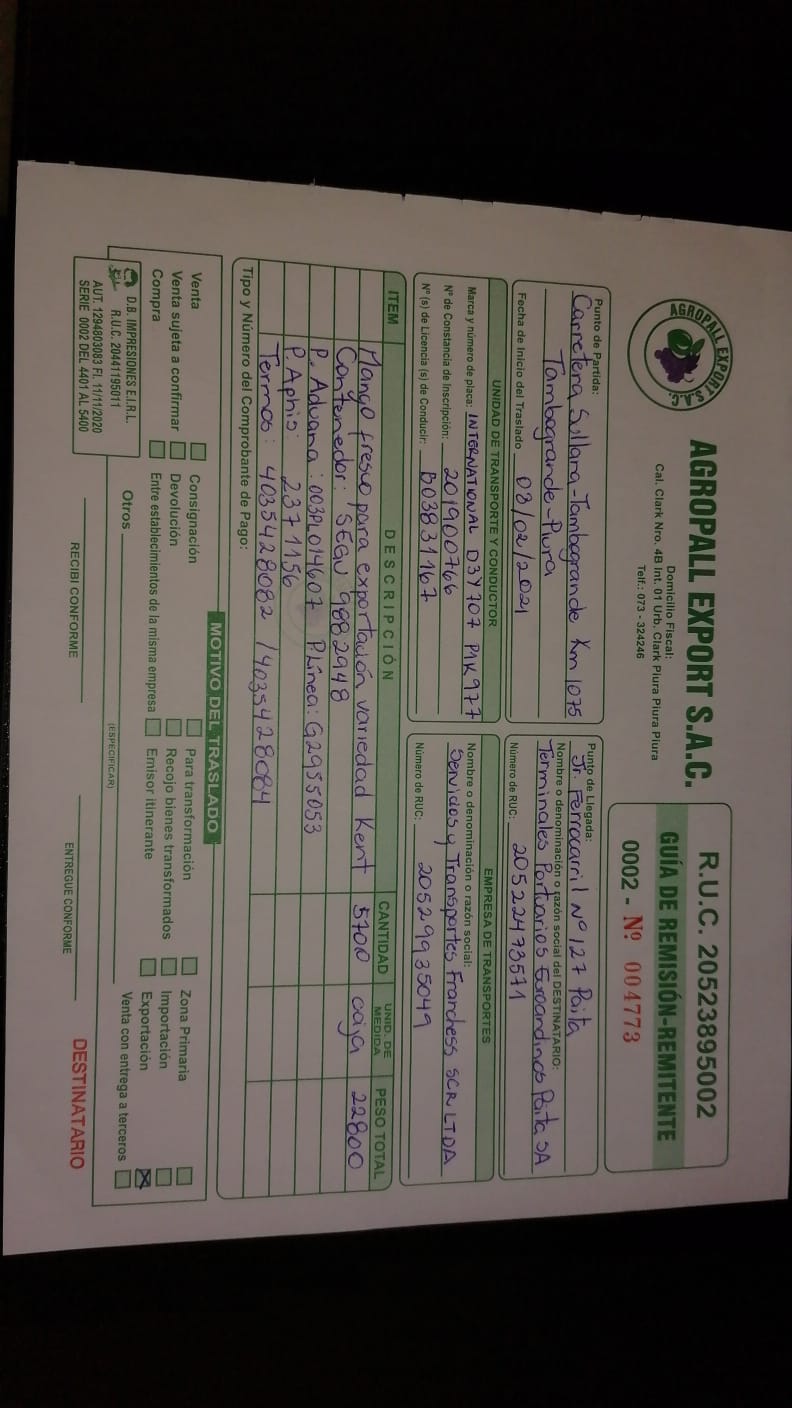 AGROPALL EXPORT S.A.C.
AGROPALL EXPORT S.A.C.
Domicilio Fiscal:
Cal. Clark Nro. 4B Int. 01 Urb. Clark Piura Piura Piura
Telf.: 073 - 324246
R.U.C. 20523895002
GUÍA DE REMISIÓN-REMITENTE
0002 - Nº 004773
Punto de Partida:
Carretera Sullana-Tambogrande Km 1075
Tambogrande-Piura
Fecha de Inicio del Traslado 03/02/2021
Punto de Llegada:
Jr. Ferrocarril Nº 127 Paita
Nombre o denominación o razón social del DESTINATARIO:
Terminales Portuarios Euroandinos Paita SA
Número de RUC: 20522473571
UNIDAD DE TRANSPORTE Y CONDUCTOR
Marca y número de placa: INTERNATIONAL D3Y707 P1K977
Nº de Constancia de Inscripción: 201900766
Nº (s) de Licencia (s) de Conducir: B03831167
EMPRESA DE TRANSPORTES
Nombre o denominación o razón social:
Servicios y Transportes Franchess SCR LTDA
Número de RUC: 20529935049
ITEM DESCRIPCIÓN CANTIDAD UNID. DE MEDIDA PESO TOTAL
Mango fresco para exportación variedad Kent 5700 caja 22800
Contenedor: SEGU 9882948
P. Aduana: 003PL014607 P.Línea: G2955053
P. Aphis: 2371156
Termos: 4035428082 / 4035428084
Tipo y Número del Comprobante de Pago:
MOTIVO DEL TRASLADO
Venta Consignación Para transformación Zona Primaria
Venta sujeta a confirmar Devolución Recojo bienes transformados Importación
Compra Entre establecimientos de la misma empresa Emisor itinerante Exportación X
Otros Venta con entrega a terceros
(ESPECIFICAR)
D.B. IMPRESIONES E.I.R.L.
R.U.C. 20441195011
AUT. 1294803083 FI. 11/11/2020
SERIE 0002 DEL 4401 AL 5400
RECIBI CONFORME
ENTREGUE CONFORME
DESTINATARIO